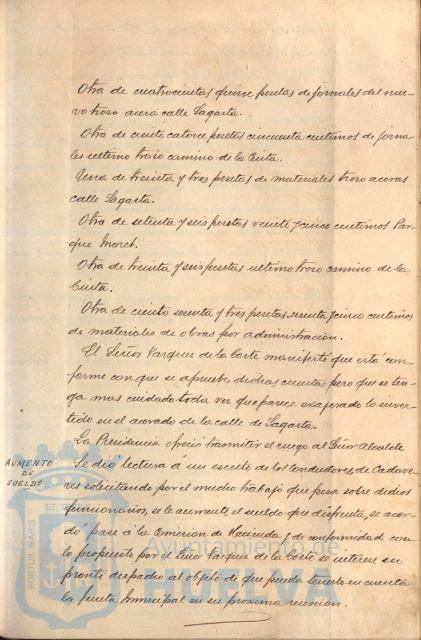 Otra de cuatrocientas quince pesetas de jornales del nue-
vo trozo acera calle Sagasta.
Otra de ciento catorce pesetas cincuenta centimos de jorna-
les ultimo trozo camino de la Cinta.
Una de treinta y tres pesetas de materiales trozo aceras
calle Sagasta.
Otra de setenta y seis pesetas veinte y cinco centimos Par-
que Moret.
Otra de treinta y seis pesetas ultimo trozo camino de la
Cinta.
Otra de ciento setenta y tres pesetas y cinco centimos
de materiales de obras por administración.
El Señor Vazquez de la Corte manifestó que está con-
forme con que se aprueben dichas cuentas pero que se ten-
ga mas cuidado toda vez que parece exagerado lo inver-
tido en el acerado de la calle de Sagasta.
La Presidencia ofreció trasmitir el ruego al Señor Alcalde
AUMENTO
DE
SUELDO
Se dió lectura á un escrito de los Conductores de Cadave-
res solicitando por el mucho trabajo que pesa sobre dichos
funcionarios, se le aumente el sueldo que disfruta, se acor-
dó pase a la Comision de Hacienda y de conformidad con
lo propuesto por el Señor Vazquez de la Corte se interese su
pronto despacho al objeto de que pueda tenerlo en cuenta
la Junta Municipal en su proxima reunion.
PORTUS MARIS
Ayuntamiento de
HUELVA